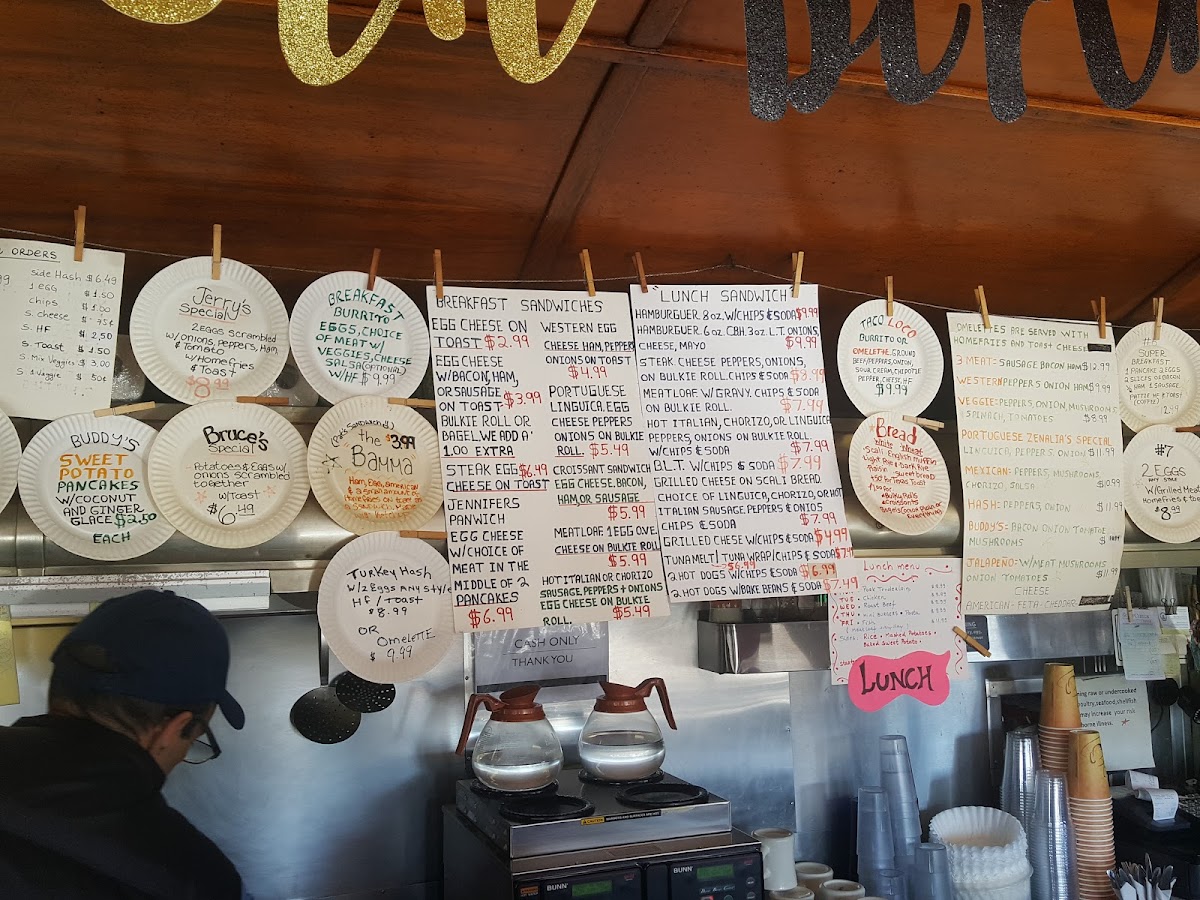 ORDERS
side Hash $6.49
1 EGG $1.50
chips $1.00
S. cheese 75¢
S. HF $2.50
S. Toast $1.50
S. Mix Veggies $3.00
S. 1 Veggie 50¢
Jerry's
Special
2 EGGS scrambled
w/onions, peppers, Ham
& Tomato
w/Homefries
& Toast
$8.99
BREAKFAST
Burrito
EGGS, CHOICE
OF MEAT W/
VEGGIES, CHEESE
SALSA (OPTIONAL)
W/HF $9.99
BUDDY'S
SWEET
POTATO
PANCAKES
W/COCONUT
AND GINGER
GLACE $2.50
EACH
Bruce's
Special
Potatoes & Eggs w/
onions scrambled
together
w/Toast
$6.49
the $3.99
Bamma
Ham, Egg, american
& a small amount of
homefries on toast
Turkey Hash
W/2 Eggs Any style
HF / Toast
$8.99
OR
OmeleTTE
$9.99
BREAKFAST SANDWICHES
EGG CHEESE ON
TOAST $2.99
EGG CHEESE
W/BACON, HAM,
OR SAUSAGE
ON TOAST $3.99
BULKIE ROLL OR
BAGEL WE ADD A'
1.00 EXTRA
STEAK EGG $6.49
CHEESE ON TOAST
JENNIFERS
PANWICH
EGG CHEESE
W/CHOICE OF
MEAT IN THE
MIDDLE OF 2
PANCAKES
$6.99
WESTERN EGG
CHEESE HAM, PEPPER
ONIONS ON TOAST
$4.99
PORTUGUESE
LINGUICA, EGG
CHEESE PEPPERS
ONIONS ON BULKIE
ROLL. $5.49
CROISSANT SANDWICH
EGG CHEESE, BACON,
HAM, OR SAUSAGE
$5.99
MEATLOAF 1 EGG OVE
CHEESE ON BULKIE ROLL
$5.99
HOT ITALIAN OR CHORIZO
SAUSAGE, PEPPERS & ONIONS
EGG CHEESE ON BULKIE
ROLL. $5.49
CASH ONLY
THANK YOU
"LUNCH SANDWICH"
HAMBURGUER 8 oz. W/CHIPS & SODA $9.99
HAMBURGUER 6 oz. CBH. 3 oz. L.T. ONIONS,
CHEESE, MAYO $9.99
STEAK CHEESE PEPPERS, ONIONS,
ON BULKIE ROLL. CHIPS & SODA
MEATLOAF W/GRAVY. CHIPS & SODA
ON BULKIE ROLL. $7.49
HOT ITALIAN, CHORIZO, OR LINGUICA
PEPPERS, ONIONS ON BULKIE ROLL.
W/CHIPS & SODA $7.99
B.L.T. W/CHIPS & SODA $7.99
GRILLED CHEESE ON SCALI BREAD.
CHOICE OF LINGUICA, CHORIZO, OR HOT
ITALIAN SAUSAGE, PEPPERS & ONIONS
CHIPS & SODA $7.99
GRILLED CHESE W/CHIPS & SODA $4.99
TUNA MELT / TUNA WRAP/CHIPS & SODA
2 HOT DOGS W/CHIPS & SODA $6.99
2 HOT DOGS W/BAKE BEANS & SODA $7.49
TACO LOCO
BURRITO OR
OMELETHE. GROUND
BEEF, PEPPERS, ONION,
SOUR CREAM, CHIPOTLE
PEPPER, CHEESE, HF
$9.99
Bread
White Wheat
Scali English Muffin
Light Rye & Dark Rye
Raisin Sweetbread
Lunch menu
Pork Tenderloin
TUE Chicken
WED Roast Beef
THU
FRI Fish
Sides: Rice • Mashed Potatoes •
Baked Sweet Potato •
LUNCH
OMELETTES ARE SERVED WITH
HOMEFRIES AND TOAST CHEESE
3 MEAT: SAUSAGE BACON HAM $12.99
WESTERN: PEPPERS ONION HAM $9.99
VEGGIE: PEPPERS, ONION, MUSHROOMS
SPINACH, TOMATOES $8.99
PORTUGUESE ZENALIA'S SPECIAL
LINGUICA, PEPPERS, ONION $11.99
MEXICAN: PEPPERS, MUSHROOMS
CHORIZO, SALSA $10.99
HASH: PEPPERS, ONION $11.99
BUDDY'S: BACON ONION TOMATOE
MUSHROOMS
JALAPENO: W/MEAT MUSHROOMS
ONION TOMATOES $11.99
CHEESE
AMERICAN - FETA - CHEDDAR
SUPER
BREAKFAST.
1 PANCAKE 2 EGGS
2 SLICES OF BACON
1 HAM 1 SAUSAGE
PATTIE HF & TOAST
(COFFEE)
#7
2 EGGS
ANY STYLE
w/Grilled Meat
Homefries & Toast
$8.99
BUNN
BUNN